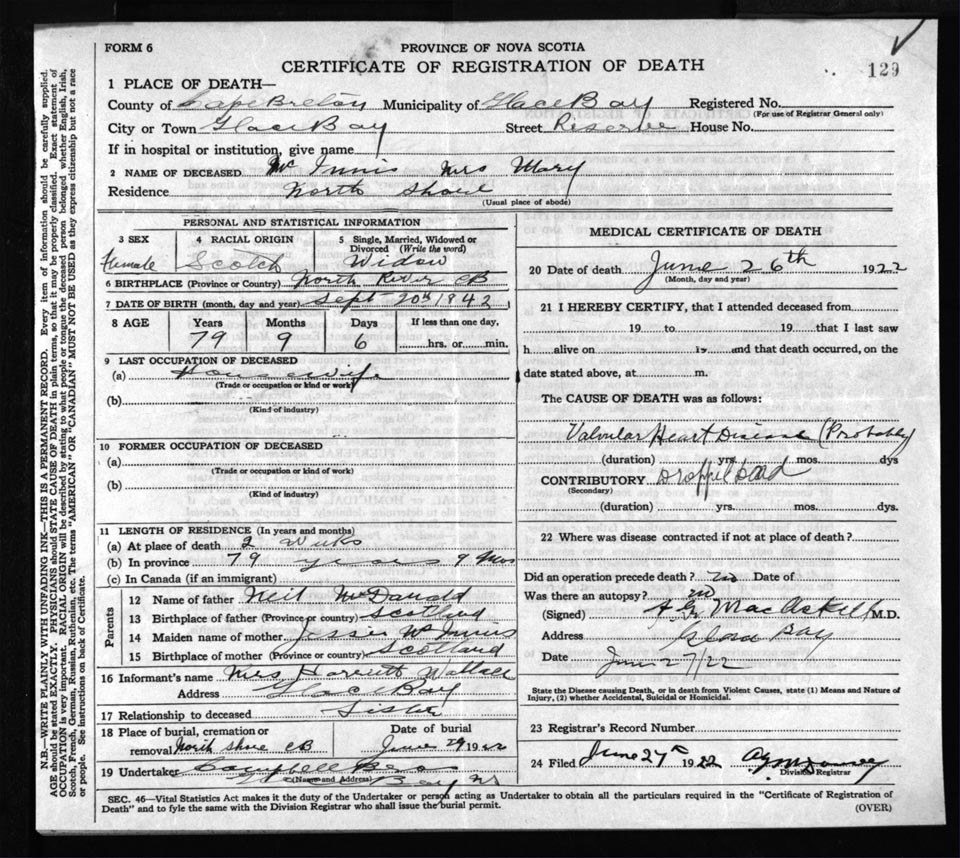 FORM 6
PROVINCE OF NOVA SCOTIA
CERTIFICATE OF REGISTRATION OF DEATH
129
1 PLACE OF DEATH—
County of Cape Breton Municipality of Glace Bay Registered No.
(For use of Registrar General only)
City or Town Glace Bay Street Reserve House No.
If in hospital or institution, give name
2 NAME OF DECEASED Mc Innis Mrs Mary
Residence North Shore
(Usual place of abode)
PERSONAL AND STATISTICAL INFORMATION
3 SEX 4 RACIAL ORIGIN 5 Single, Married, Widowed or Divorced (Write the word)
Female Scotch Widow
6 BIRTHPLACE (Province or Country) North River CB
7 DATE OF BIRTH (month, day and year) Sept 20th 1842
8 AGE Years Months Days If less than one day,
79 9 6 hrs. or min.
9 LAST OCCUPATION OF DECEASED
(a) Housewife
(Trade or occupation or kind of work)
(b)
(Kind of industry)
10 FORMER OCCUPATION OF DECEASED
(a)
(Trade or occupation or kind of work)
(b)
(Kind of industry)
11 LENGTH OF RESIDENCE (In years and months)
(a) At place of death 2 Weeks
(b) In province 79 years 9 mos
(c) In Canada (if an immigrant)
Parents
12 Name of father Neil McDonald
13 Birthplace of father (Province or country) Scotland
14 Maiden name of mother Jessie McInnis
15 Birthplace of mother (Province or country) Scotland
16 Informant's name Mrs Harriett Wallace
Address Glace Bay
17 Relationship to deceased Sister
18 Place of burial, cremation or removal North Shore CB
Date of burial June 29 1922
19 Undertaker Campbell Bros
(Name and Address) Bay NS
MEDICAL CERTIFICATE OF DEATH
20 Date of death June 26th 1922
(Month, day and year)
21 I HEREBY CERTIFY, that I attended deceased from
19 to 19 that I last saw
h alive on 19 and that death occurred, on the
date stated above, at m.
The CAUSE OF DEATH was as follows:
Valvular Heart Disease (Probably)
(duration) yrs. mos. dys
CONTRIBUTORY Dropped Dead
(Secondary)
(duration) yrs. mos. dys.
22 Where was disease contracted if not at place of death?
Did an operation precede death? no Date of
Was there an autopsy? no
(Signed) MacAskill M.D.
Address Glace Bay
Date June 27/22
State the Disease causing Death, or in death from Violent Causes, state (1) Means and Nature of
Injury, (2) whether Accidental, Suicidal or Homicidal.
23 Registrar's Record Number
24 Filed June 27th 1922
Division Registrar
SEC. 46—Vital Statistics Act makes it the duty of the Undertaker or person acting as Undertaker to obtain all the particulars required in the "Certificate of Registration of
Death" and to fyle the same with the Division Registrar who shall issue the burial permit.
(OVER)
N.B.—WRITE PLAINLY WITH UNFADING INK—THIS IS A PERMANENT RECORD. Every item of information should be carefully supplied.
AGE should be stated EXACTLY. PHYSICIANS should STATE CAUSE OF DEATH in plain terms, so that it may be properly classified. Exact statement of
OCCUPATION is very important. RACIAL ORIGIN will be described by stating to what people or tongue the deceased person belonged, whether English, Irish,
Scotch, French, German, Russian, Ruthenian, etc. The terms "AMERICAN" OR "CANADIAN" MUST NOT BE USED as they express citizenship but not a race
or people. See instructions on back of Certificate.